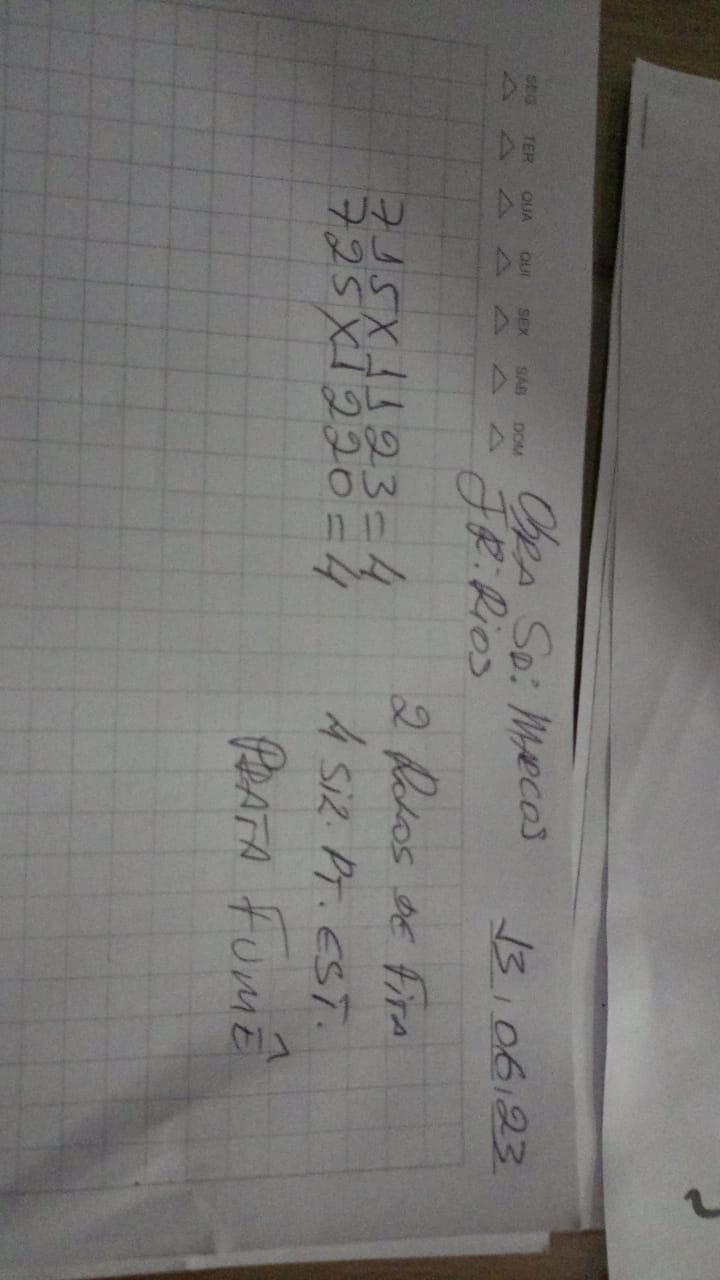 SEG TER QUA QUI SEX SÁB DOM
OBRA SR: MARCOS 13.06.23
JR: RIOS
715X1123=4 2 ROLOS DE FITA
725X1220=4 4 SIL. PT. EST.
PRATA FUMÊ